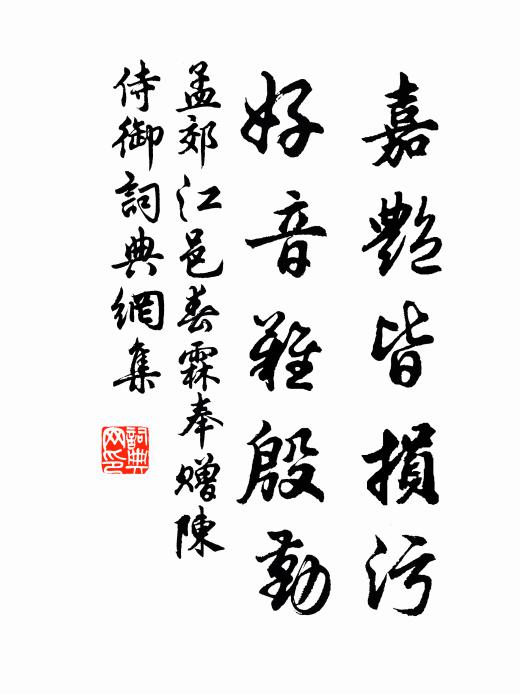 嘉艷皆損污
好音難殷勤
孟郊江邑春霖奉贈陳
侍御詞典網集
詞典网印